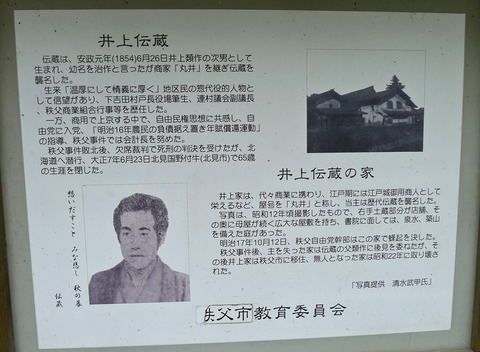 井上伝蔵
伝蔵は、安政元年(1854)6月26日井上類作の次男として
生まれ、幼名を治作と言ったが商家「丸井」を継ぎ伝蔵を
襲名した。
生来「温厚にして情義に厚く」地区民の惣代役的人物
として信望があり、下吉田村戸長役場筆生、連村議会副議長
、秩父商業組合行事等を歴任した。
一方、商用で上京する中で、自由民権思想に共感し、自
由党に入党、「明治16年農民の負債据え置き年賦償還運動」
の指導、秩父事件では会計長を努めた。
秩父事件敗北後、欠席裁判で死刑の判決を受けたが、北
海道へ潜行、大正7年6月23日北見国野付牛(北見市)で65歳
の生涯を閉じた。
井上伝蔵の家
井上家は、代々商業に携わり、江戸期には江戸城御用商人として
栄えるなど、屋号を「丸井」と称し、当主は歴代伝蔵を襲名した。
写真は、昭和12年頃撮影したもので、右手土蔵部分が店舗、そ
の奥に母屋が続く広大な屋敷を持ち、書院に面しては、泉水、築山
を備えた庭があった。
明治17年10月12日、秩父自由党幹部はこの家で蜂起を決した。
秩父事件後、主を失った家は伝蔵の父類作に後見を委ねたが、そ
の後井上家は秩父市に移住、無人となった家は昭和22年に取り壊さ
れた。
「写真提供 清水武甲氏」
想いだすこと
みな悲し
秋の暮
伝蔵
秩父市教育委員会